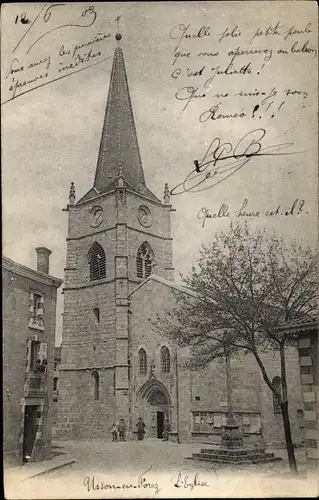 12/6 03
Vous les premières
avez
épreuves inédites
Quelle jolie petite poule
que vous apercevez au balcon
C'est Juliette !
Que ne suis-je son
Romeo ! !
Quelle heure est-il ?
Usson-en-Forez L'Eglise